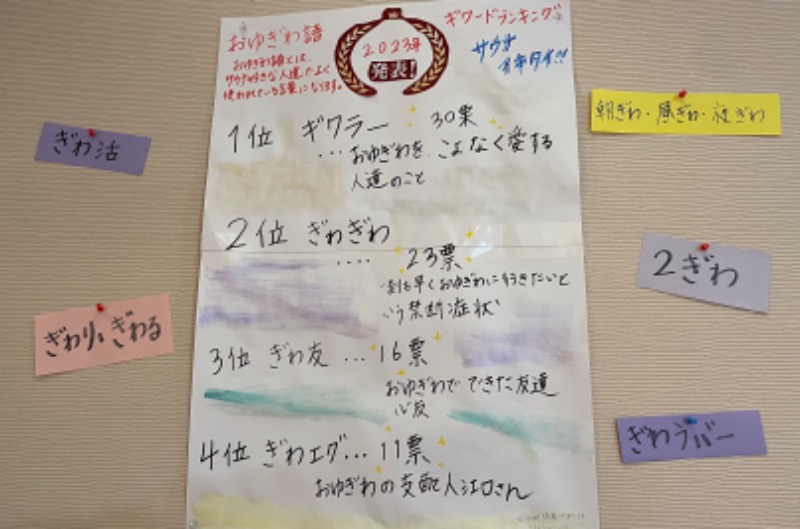 おゆぎわ語
おゆぎわ語とは、
サウナ好きな人達でよく
使われている言葉になります。
2023年
発表!
ギワードランキング
サウナ
1位 ギワラー 30票
...おゆぎわを こよなく愛する
人達のこと
2位 ぎわぎわ
.... 23票
一刻も早くおゆぎわに行きたいと
いう禁断症状
3位 ぎわ友 ... 16票
おゆぎわで できた友達
心友
4位 ぎわエグ... 11票
おゆぎわの支配人江口さん
ぎわ活
ぎわり、ぎわる
朝ぎわ・昼ぎわ・夜ぎわ
2ぎわ
ぎわラバー